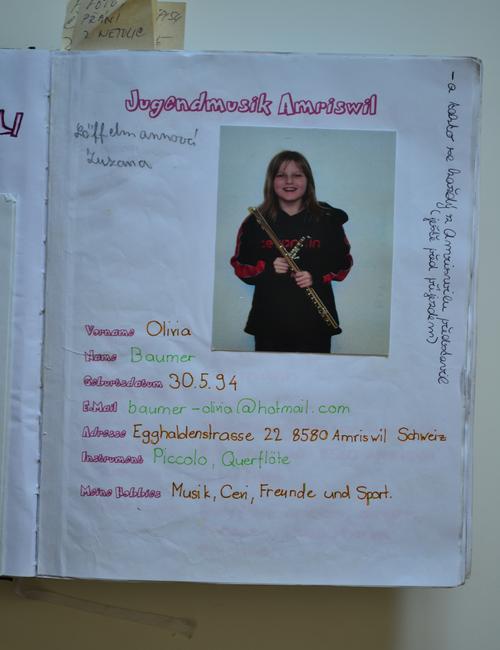 PŘÁNÍ
Z NETOLIC
Jugendmusik Amriswil
Löffelmannová
Zuzana
Vorname Olivia
Name Baumer
Geburtsdatum 30.5.94
E-Mail baumer-olivia@hotmail.com
Adresse Egghaldenstrasse 22 8580 Amriswil Schweiz
Instrument Piccolo, Querflöte
Meine Hobbies Musik, Cevi, Freunde und Sport.
- a takto se každý z Amriswilu představil
(ještě před příjezdem)